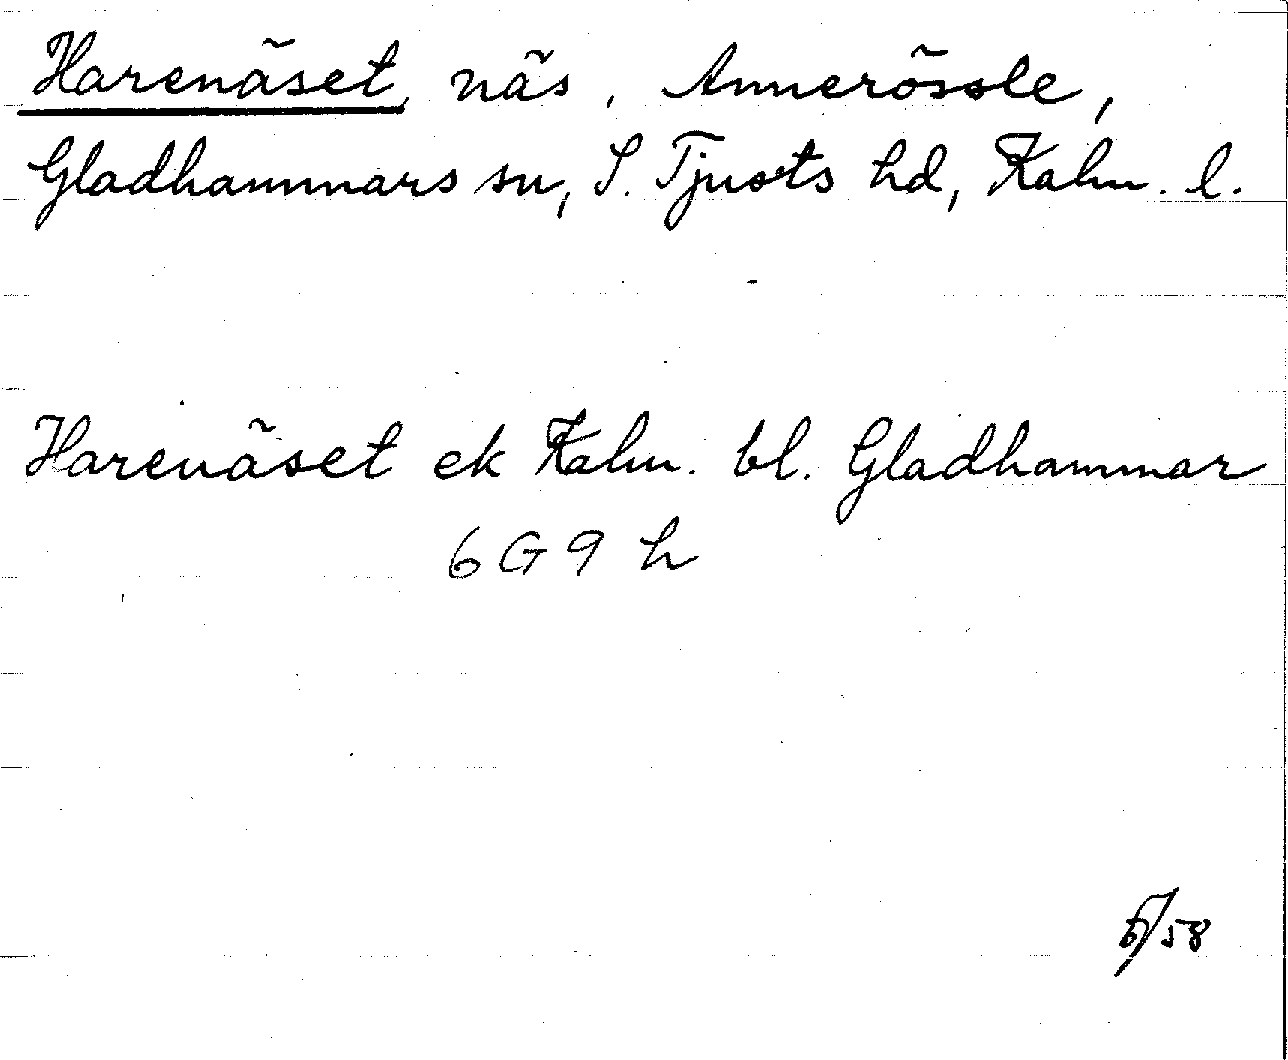 Harenäset, näs, Annerössle,
Gladhammars sn, S. Tjusts hd, Kalm. l.
Harenäset ek Kalm. bl. Gladhammar
6 G 9 h
/58